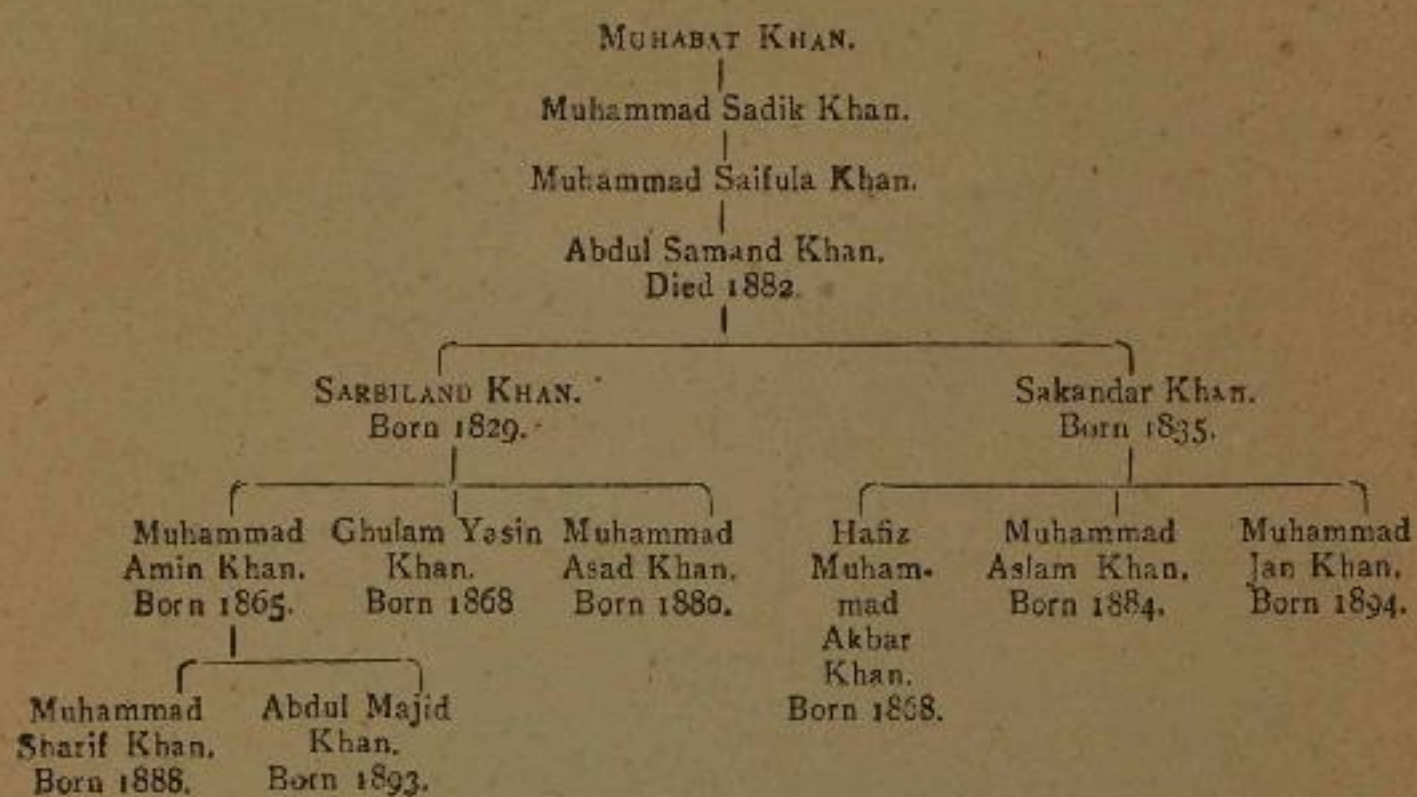 MUHABAT KHAN.
Muhammad Sadik Khan.
Muhammad Saifula Khan.
Abdul Samand Khan.
Died 1882.
SARBILAND KHAN.
Born 1829.
Sakandar Khan.
Born 1835.
Muhammad
Amin Khan.
Born 1865.
Ghulam Yasin
Khan.
Born 1868
Muhammad
Asad Khan.
Born 1880.
Hafiz
Muham-
mad
Akbar
Khan.
Born 1868.
Muhammad
Aslam Khan.
Born 1884.
Muhammad
Jan Khan.
Born 1894.
Muhammad
Sharif Khan.
Born 1888.
Abdul Majid
Khan.
Born 1893.